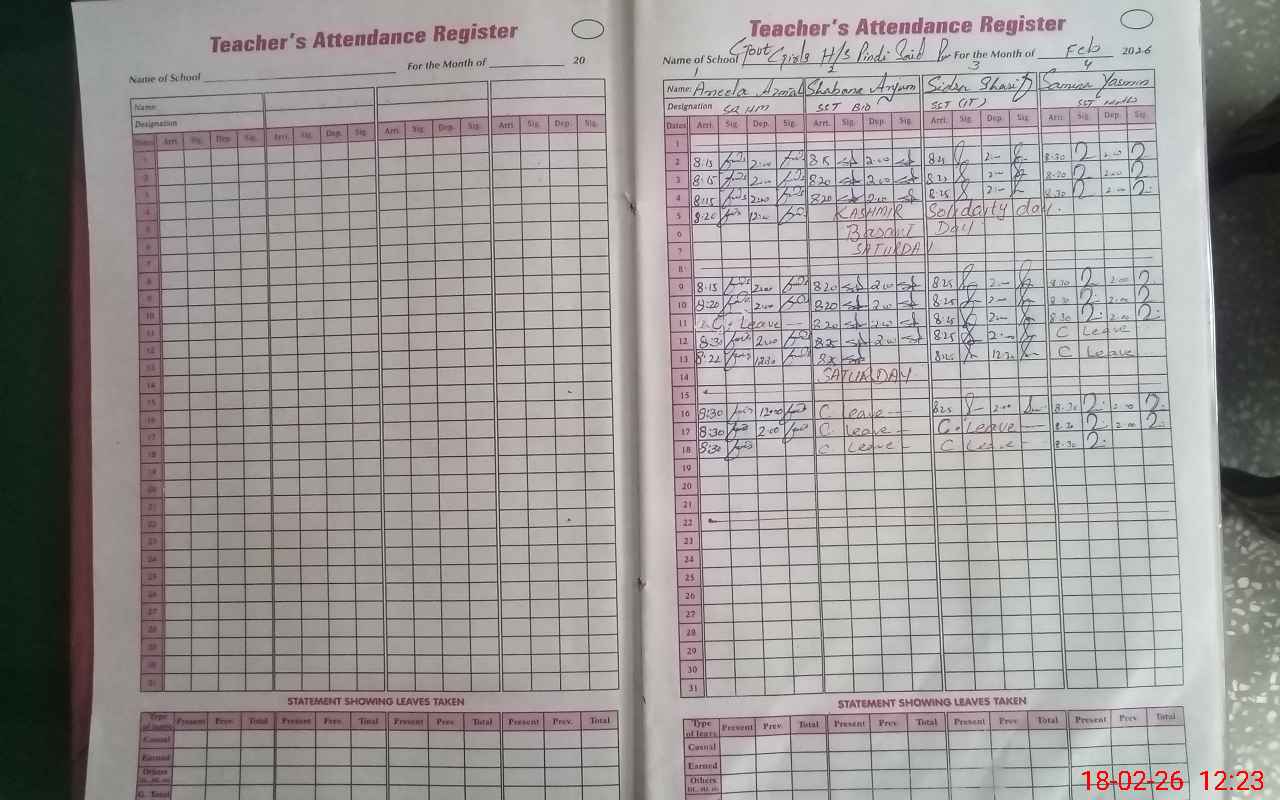 Teacher's Attendance Register
Name of School For the Month of 20
Name:
Designation
Dates Arri. Sig. Dep. Sig. Arri. Sig. Dep. Sig. Arri. Sig. Dep. Sig. Arri. Sig. Dep. Sig.
1
2
3
4
5
6
7
8
9
10
11
12
13
14
15
16
17
18
19
20
21
22
23
24
25
26
27
28
29
30
31
STATEMENT SHOWING LEAVES TAKEN
Type of leave Present Prev. Total Present Prev. Total Present Prev. Total Present Prev. Total
Casual
Earned
Others
G. Total
Teacher's Attendance Register
Name of School Govt Girls H/S Pindi Said Pur For the Month of Feb 2026
1 2 3 4
Name: Aneela Azmal Shabana Anjum Sidra Sharif Samina Yasmin
Designation SST BIO SST (IT) SST
Dates Arri. Sig. Dep. Sig. Arri. Sig. Dep. Sig. Arri. Sig. Dep. Sig. Arri. Sig. Dep. Sig.
1
2 8:15 2:00 2:00 8:30 2:00
3 8:15 2:00 820 2:00 8:30 2:00
4 8:15 2:00 820 2:00 8:25 8:30 2:00
5 8:20 12:00 KASHMIR Solidarity day.
6 Basant Day
7 SATURDAY
8
9 8:15 2:00 820 2:00 825 8:30 2:00
10 8:20 2:00 820 2:00 8:25 8:30 2:00
11 C. Leave 820 2:00 8:25 8:30 2:00
12 8:30 2:00 825 2:00 825 C Leave
13 8:22 12:30 825 8:25 12:30 C Leave
14 SATURDAY
15
16 8:30 12:00 C leave 825 2:00 8:30 2:00
17 8:30 2:00 C. leave C. Leave 8:30 2:00
18 8:30 C leave C Leave 8:30
19
20
21
22
23
24
25
26
27
28
29
30
31
STATEMENT SHOWING LEAVES TAKEN
Type of leave Present Prev. Total Present Prev. Total Present Prev. Total Present Prev. Total
Casual
Earned
Others
18-02-26 12:23